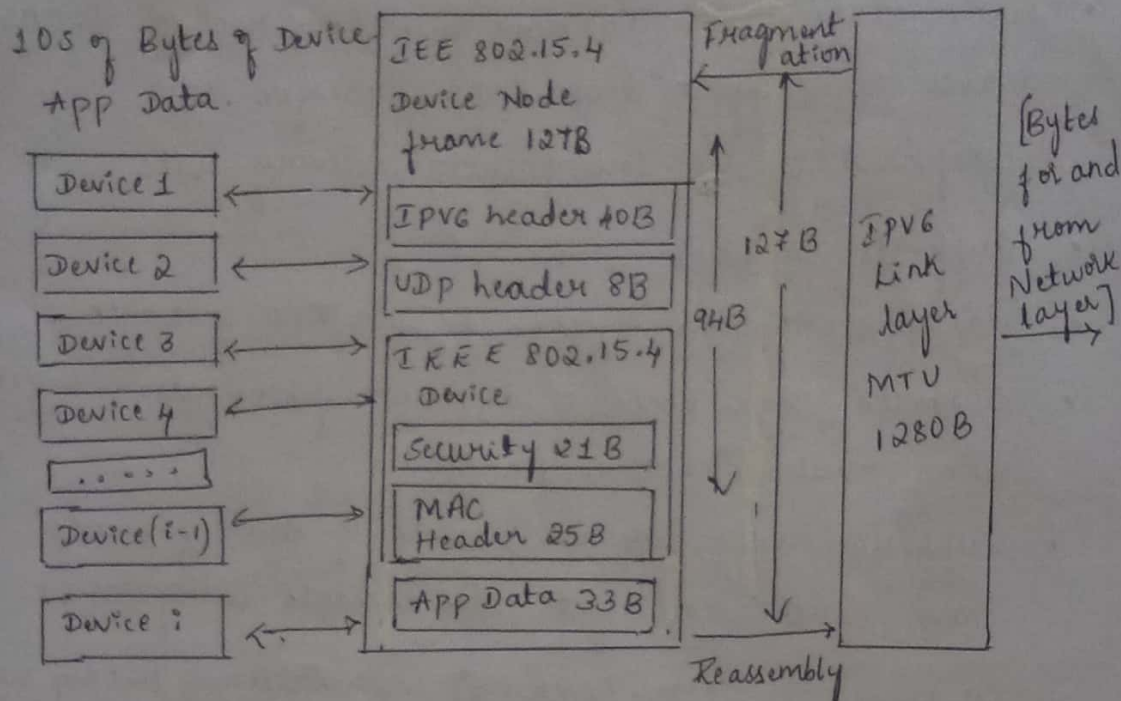 10s of Bytes of Device
App Data.
Device 1
Device 2
Device 3
Device 4
.....
Device(i-1)
Device i
IEE 802.15.4
Device Node
frame 127B
IPV6 header 40B
UDP header 8B
IEEE 802.15.4
Device
Security 21B
MAC
Header 25B
App Data 33B
Fragment
ation
94B
127B
Reassembly
IPV6
Link
layer
MTU
1280B
[Bytes
for and
from
Network
layer]